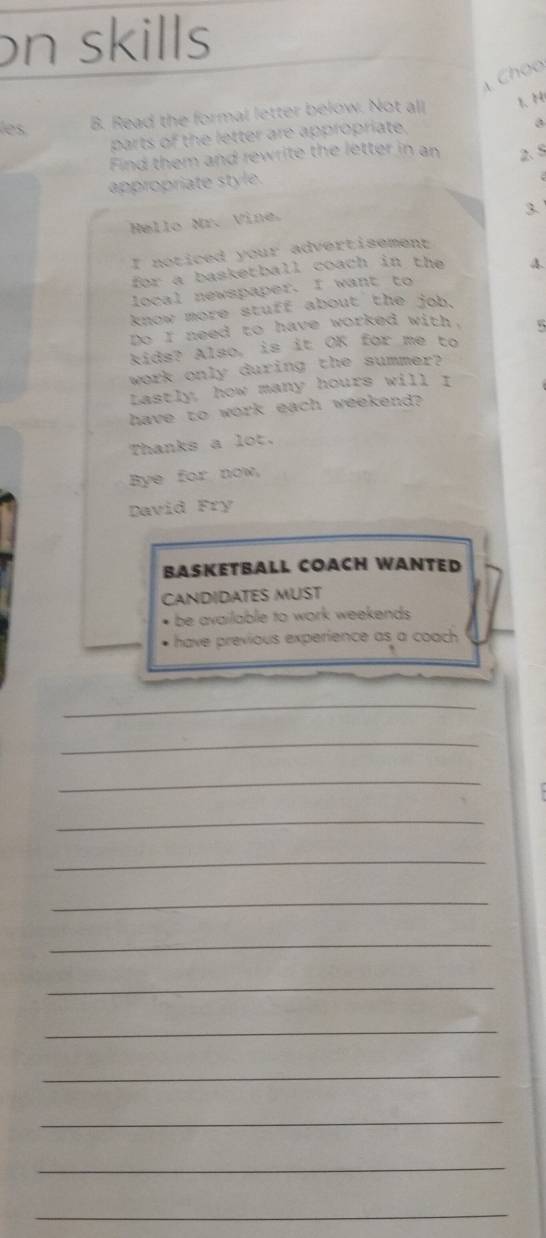 on skills
les.
B. Read the formal letter below. Not all
parts of the letter are appropriate.
Find them and rewrite the letter in an
appropriate style.
Hello Mr. Vine,
I noticed your advertisement
for a basketball coach in the
local newspaper. I want to
know more stuff about the job.
Do I need to have worked with
kids? Also, is it OK for me to
work only during the summer?
Lastly, how many hours will I
have to work each weekend?
Thanks a lot.
Bye for now,
David Fry
BASKETBALL COACH WANTED
CANDIDATES MUST
• be available to work weekends
• have previous experience as a coach
A. Choo
1. H
a
2. S
3.
4.
5